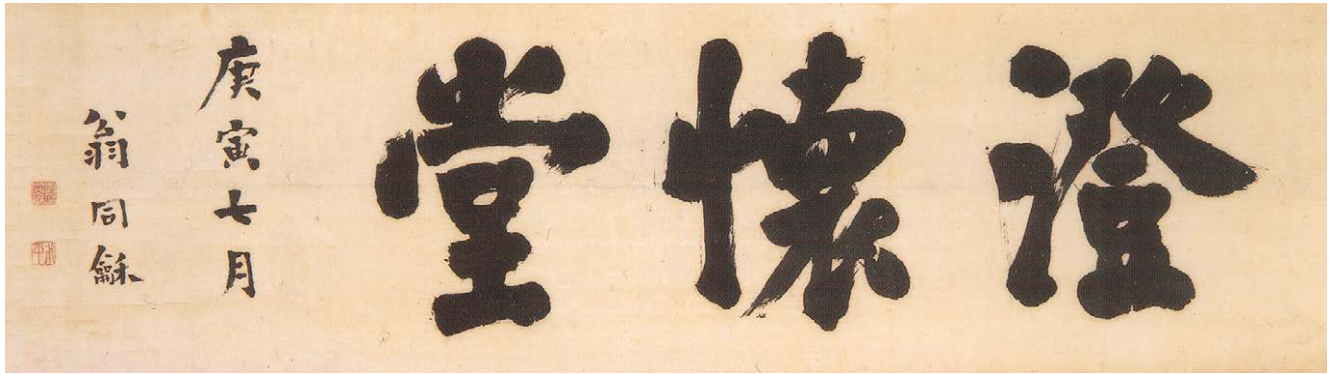 澄懷堂
庚寅七月
翁同龢